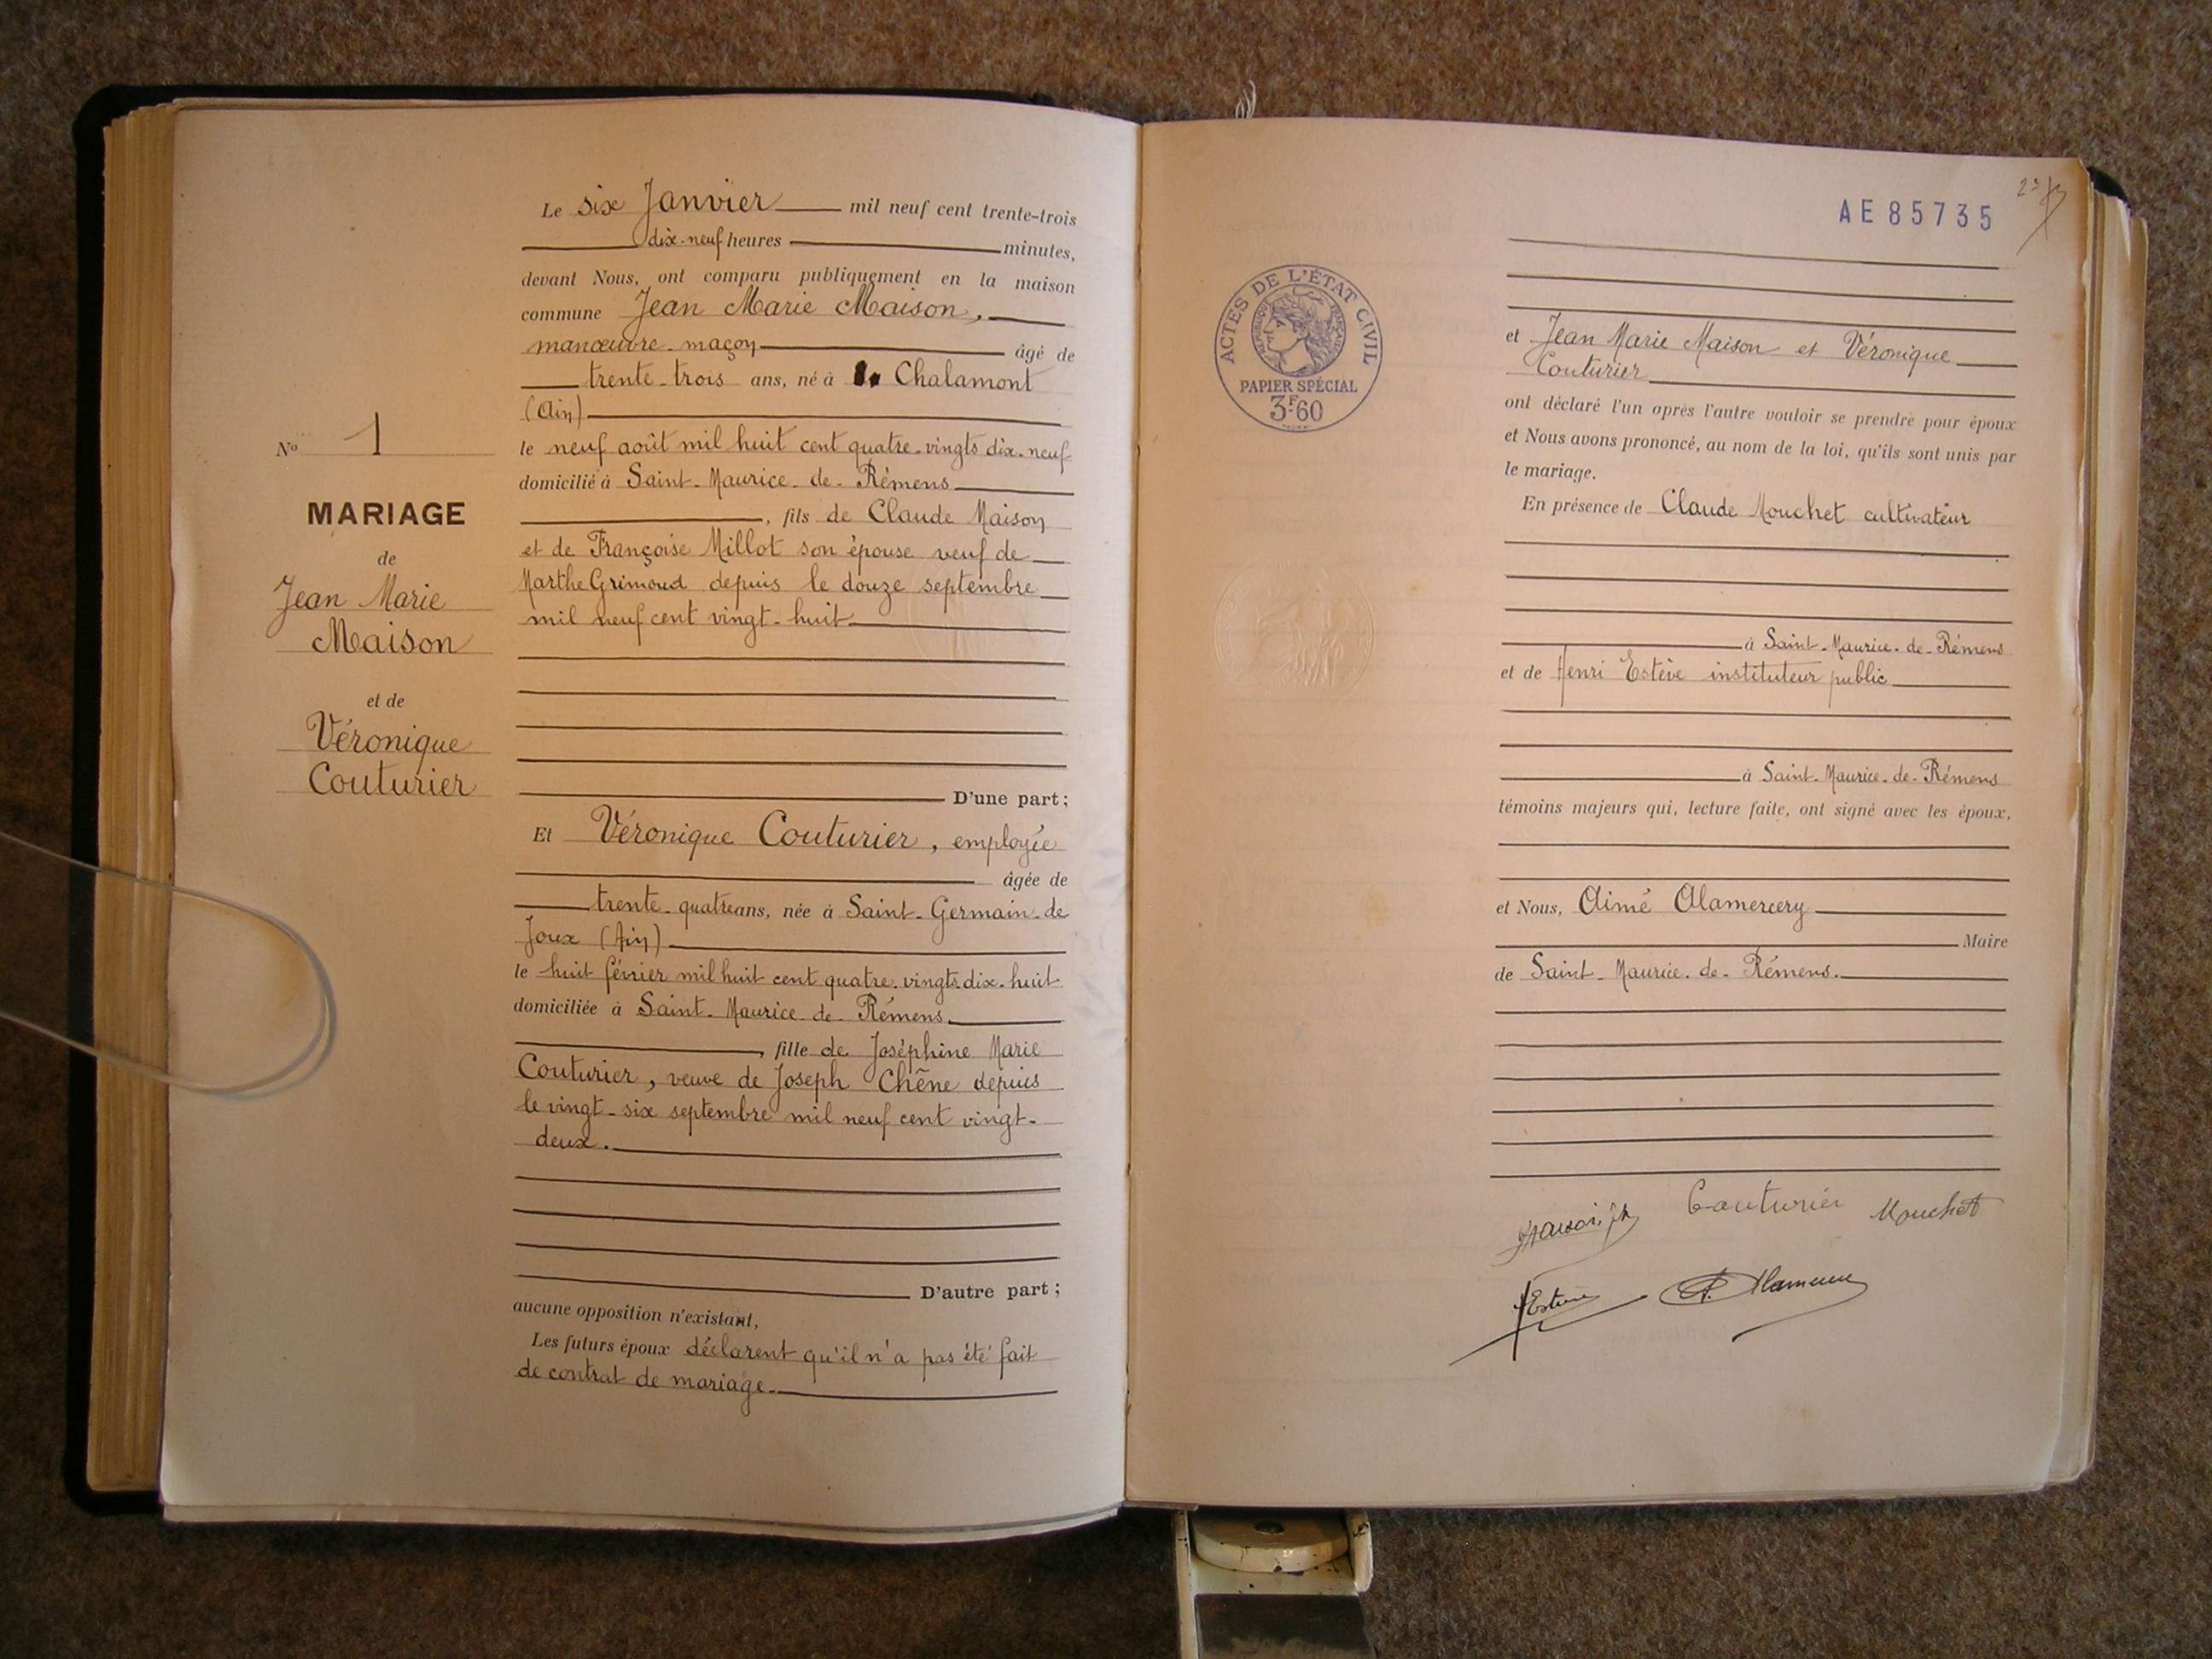 N° 1
MARIAGE
de
Jean Marie
Maison
et de
Véronique
Couturier
Le six Janvier mil neuf cent trente-trois
dix-neuf heures minutes,
devant Nous, ont comparu publiquement en la maison
commune Jean Marie Maison,
manœuvre-maçon âgé de
trente-trois ans, né à Chalamont
(Ain)
le neuf août mil huit cent quatre-vingts dix-neuf
domicilié à Saint-Maurice-de-Rémens
, fils de Claude Maison
et de Françoise Millot son épouse veuf de
Marthe Grimoud depuis le douze septembre
mil neuf cent vingt-huit
D'une part;
Et Véronique Couturier, employée
âgée de
trente-quatre ans, née à Saint-Germain-de
Joux (Ain)
le huit février mil huit cent quatre-vingts-dix-huit
domiciliée à Saint-Maurice-de-Rémens
, fille de Joséphine Marie
Couturier, veuve de Joseph Chêne depuis
le vingt-six septembre mil neuf cent vingt-
deux.
D'autre part;
aucune opposition n'existant,
Les futurs époux déclarent qu'il n'a pas été fait
de contrat de mariage.
AE85735
ACTES DE L'ÉTAT CIVIL
RÉPUBLIQUE FRANÇAISE
PAPIER SPÉCIAL
3F60
et Jean Marie Maison et Véronique
Couturier
ont déclaré l'un après l'autre vouloir se prendre pour époux
et Nous avons prononcé, au nom de la loi, qu'ils sont unis par
le mariage.
En présence de Claude Mouchet cultivateur
à Saint-Maurice-de-Rémens
et de Henri Estève instituteur public
à Saint-Maurice-de-Rémens
témoins majeurs qui, lecture faite, ont signé avec les époux,
et Nous, Aimé Alamercery
Maire
de Saint-Maurice-de-Rémens.
Couturier Mouchet